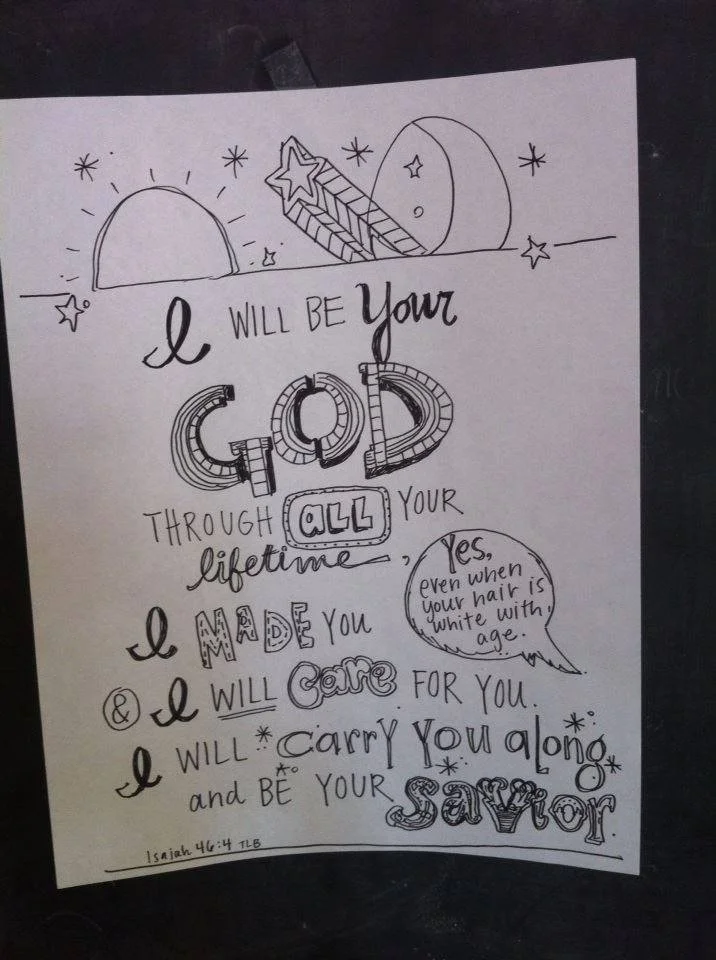 I WILL BE Your
GOD
THROUGH ALL YOUR
lifetime,
Yes,
even when
your hair is
white with
age.
I MADE YOU
& I WILL Care FOR YOU.
I WILL carry you along
and BE YOUR Savior.
Isaiah 46:4 TLB